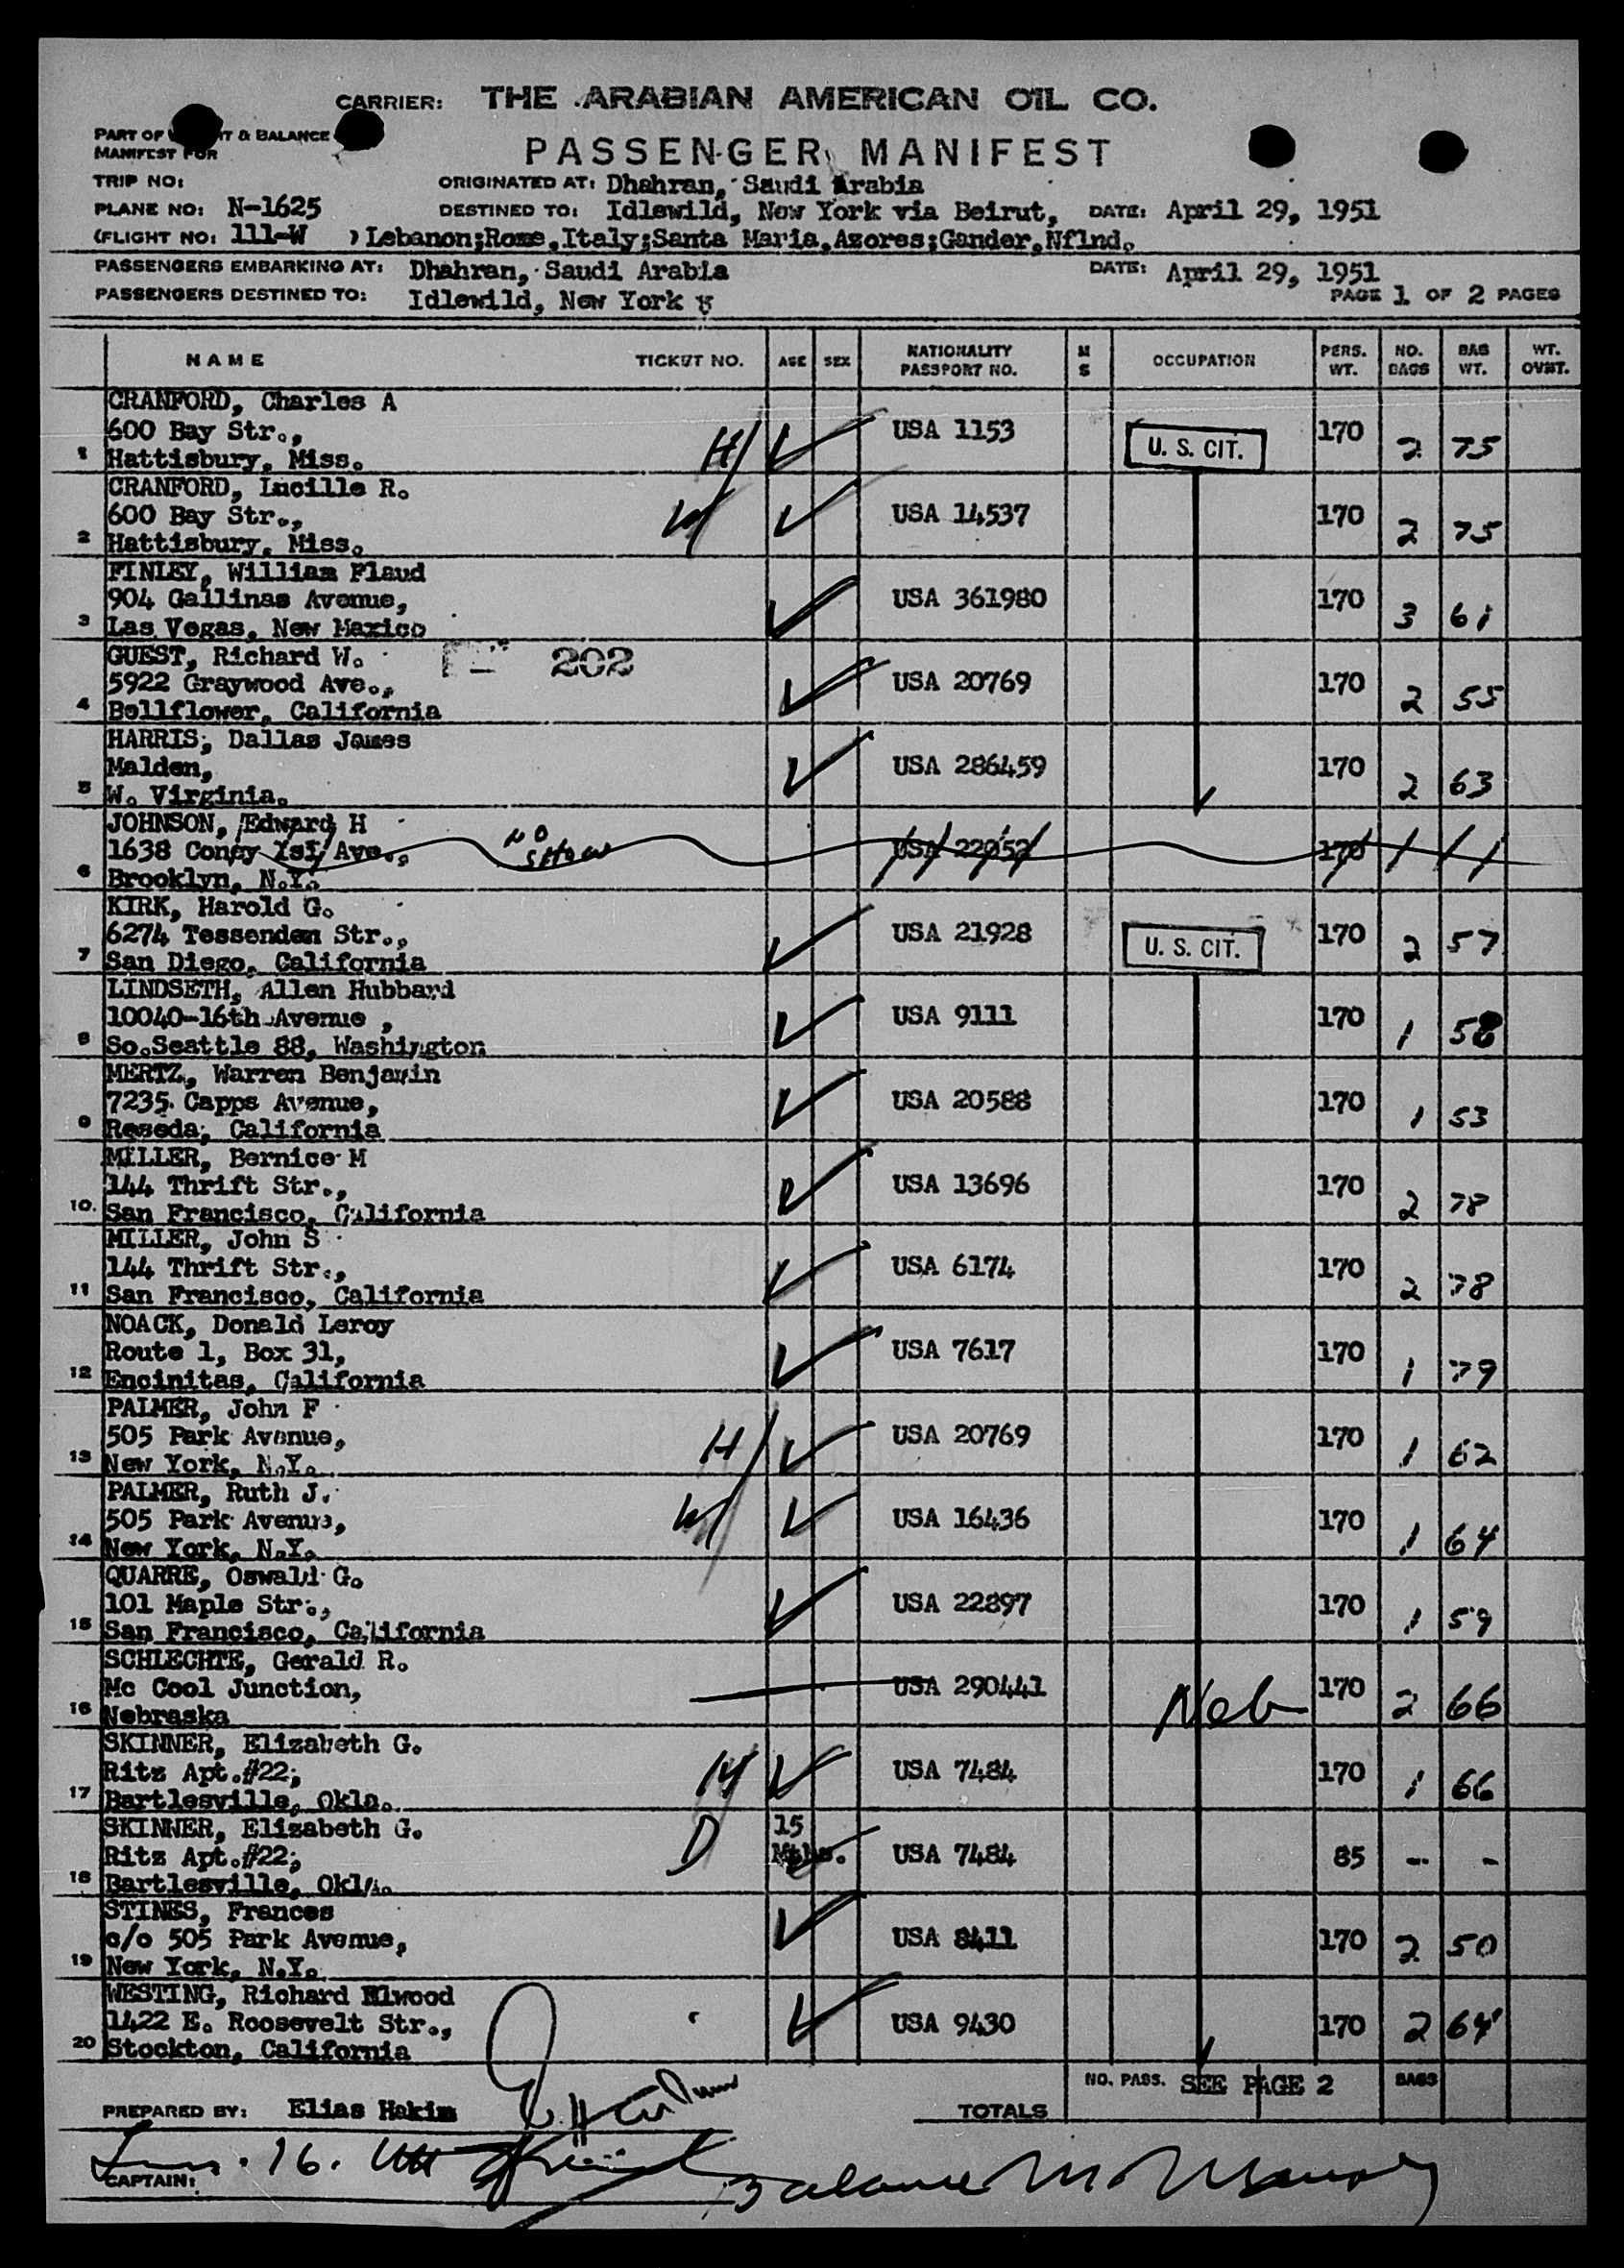 CARRIER: THE ARABIAN AMERICAN OIL CO.
PART OF & BALANCE
MANIFEST FOR
PASSENGER MANIFEST
TRIP NO: ORIGINATED AT: Dhahran, Saudi Arabia
PLANE NO: N-1625 DESTINED TO: Idlewild, New York via Beirut, DATE: April 29, 1951
(FLIGHT NO: 111-W ) Lebanon;Rome,Italy;Santa Maria,Azores;Gander,Nflnd.
PASSENGERS EMBARKING AT: Dhahran, Saudi Arabia DATE: April 29, 1951
PASSENGERS DESTINED TO: Idlewild, New York PAGE 1 OF 2 PAGES
NAME TICKET NO. AGE SEX NATIONALITY PASSPORT NO. M S OCCUPATION PERS. WT. NO. BAGS BAG WT. WT. OVWT.
CRANFORD, Charles A
600 Bay Str., H USA 1153 U. S. CIT. 170 2 75
1 Hattisbury, Miss.
CRANFORD, Lucille R.
600 Bay Str., W USA 14537 170 2 75
2 Hattisbury, Miss.
FINLEY, William Flaud
904 Gallinas Avenue, USA 361980 170 3 61
3 Las Vegas, New Maxico
GUEST, Richard W. 202
5922 Graywood Ave., USA 20769 170 2 55
4 Bellflower, California
HARRIS, Dallas James
Malden, USA 286459 170 2 63
5 W. Virginia.
JOHNSON, Edward H
1638 Coney Isl Ave., NO SHOW USA 22052 170
6 Brooklyn, N.Y.
KIRK, Harold G.
6274 Tessenden Str., USA 21928 U. S. CIT. 170 2 57
7 San Diego, California
LINDSETH, Allen Hubbard
10040-16th Avenue , USA 9111 170 1 58
8 So.Seattle 88, Washington
MERTZ, Warren Benjamin
7235 Capps Avenue, USA 20588 170 1 53
9 Reseda, California
MILLER, Bernice M
144 Thrift Str., USA 13696 170 2 78
10. San Francisco, California
MILLER, John S
144 Thrift Str., USA 6174 170 2 78
11 San Francisco, California
NOACK, Donald Leroy
Route 1, Box 31, USA 7617 170 1 79
12 Encinitas, California
PALMER, John F
505 Park Avenue, H USA 20769 170 1 62
13 New York, N.Y.
PALMER, Ruth J.
505 Park Avenue, W USA 16436 170 1 64
14 New York, N.Y.
QUARRE, Oswald G.
101 Maple Str., USA 22897 170 1 59
15 San Francisco, California
SCHLECHTE, Gerald R.
Mc Cool Junction, USA 290441 Neb 170 2 66
16 Nebraska
SKINNER, Elizabeth G.
Ritz Apt.#22, M USA 7484 170 1 66
17 Bartlesville, Okla.
SKINNER, Elizabeth G. 15
Ritz Apt.#22, D Mths. USA 7484 85 -- -
18 Bartlesville, Okla.
STINES, Frances
c/o 505 Park Avenue, USA 8411 170 2 50
19 New York, N.Y.
WESTING, Richard Elwood
1422 E. Roosevelt Str., USA 9430 170 2 64
20 Stockton, California
NO. PASS. SEE PAGE 2 BAGS
PREPARED BY: Elias Hakim TOTALS
16.
CAPTAIN: